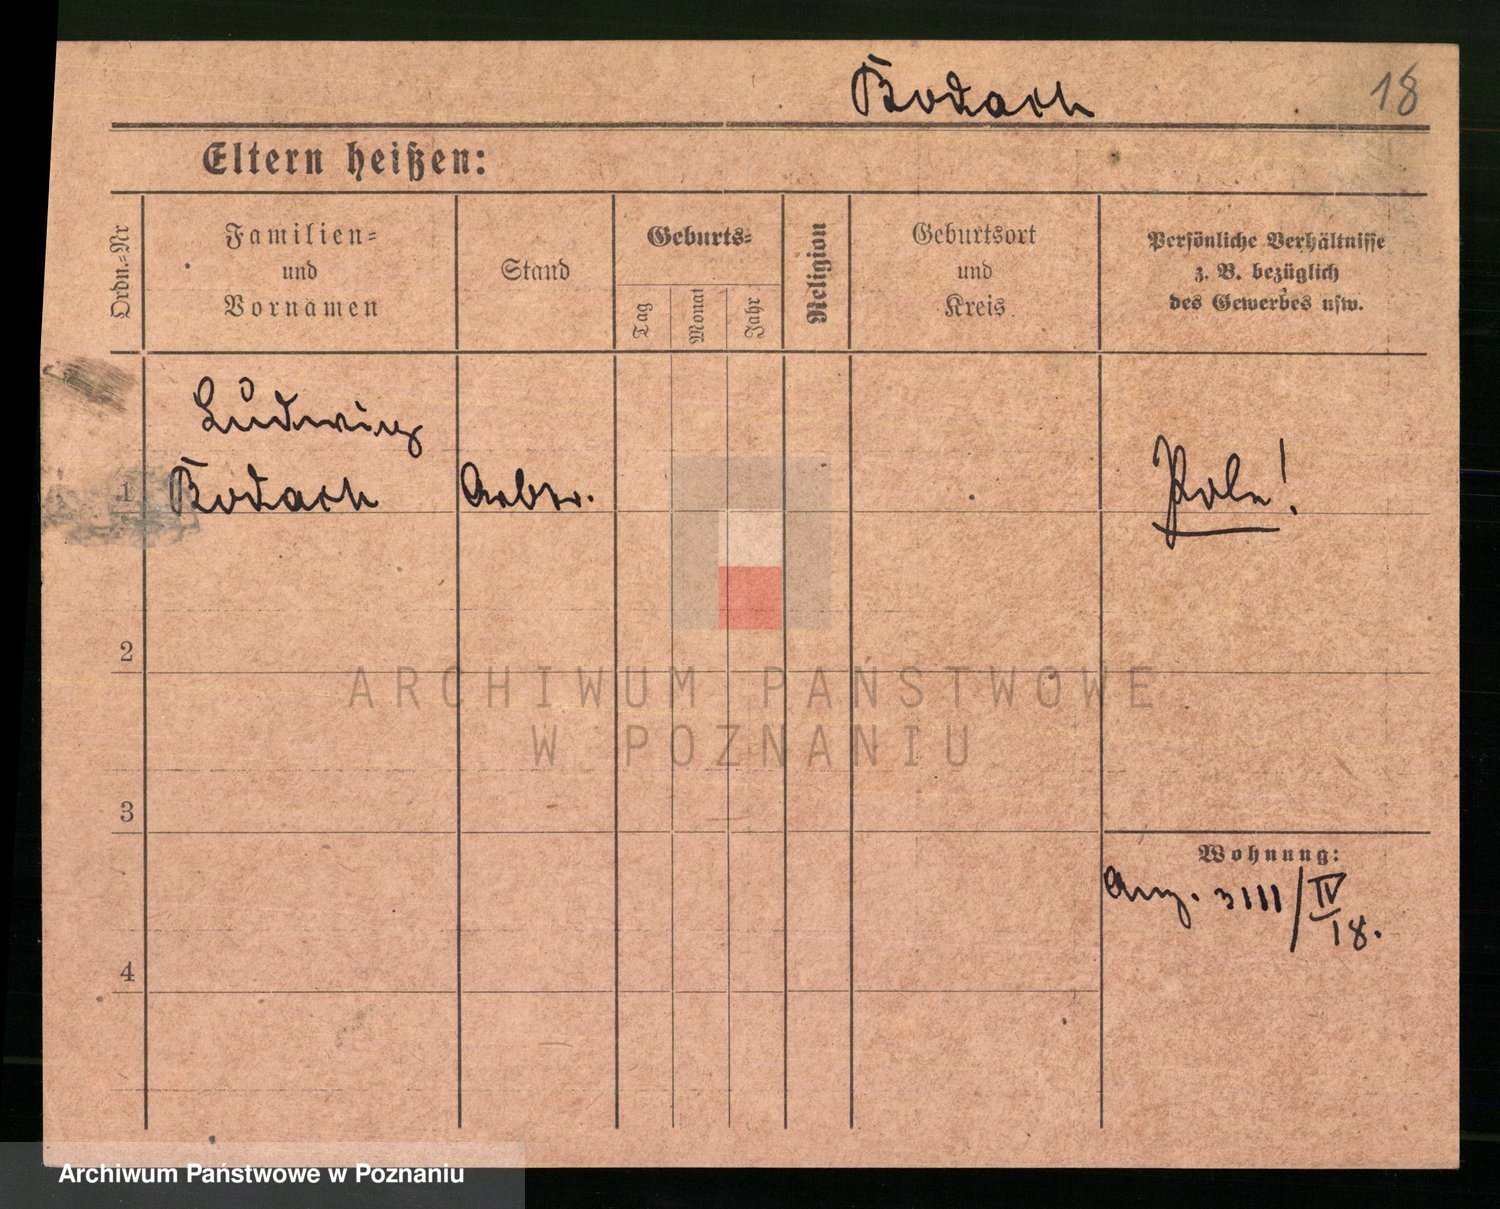 Bodach 18
Eltern heißen:
Ordn.=Nr
Familien=
und
Vornamen
Stand
Geburts=
Tag
Monat
Jahr
Religion
Geburtsort
und
Kreis
Persönliche Verhältnisse
z. B. bezüglich
des Gewerbes usw.
Ludwig
1 Bodach Arbtr. Pole!
2
ARCHIWUM PAŃSTWOWE
W POZNANIU
3
Wohnung:
3111/IV
18.
4
Archiwum Państwowe w Poznaniu